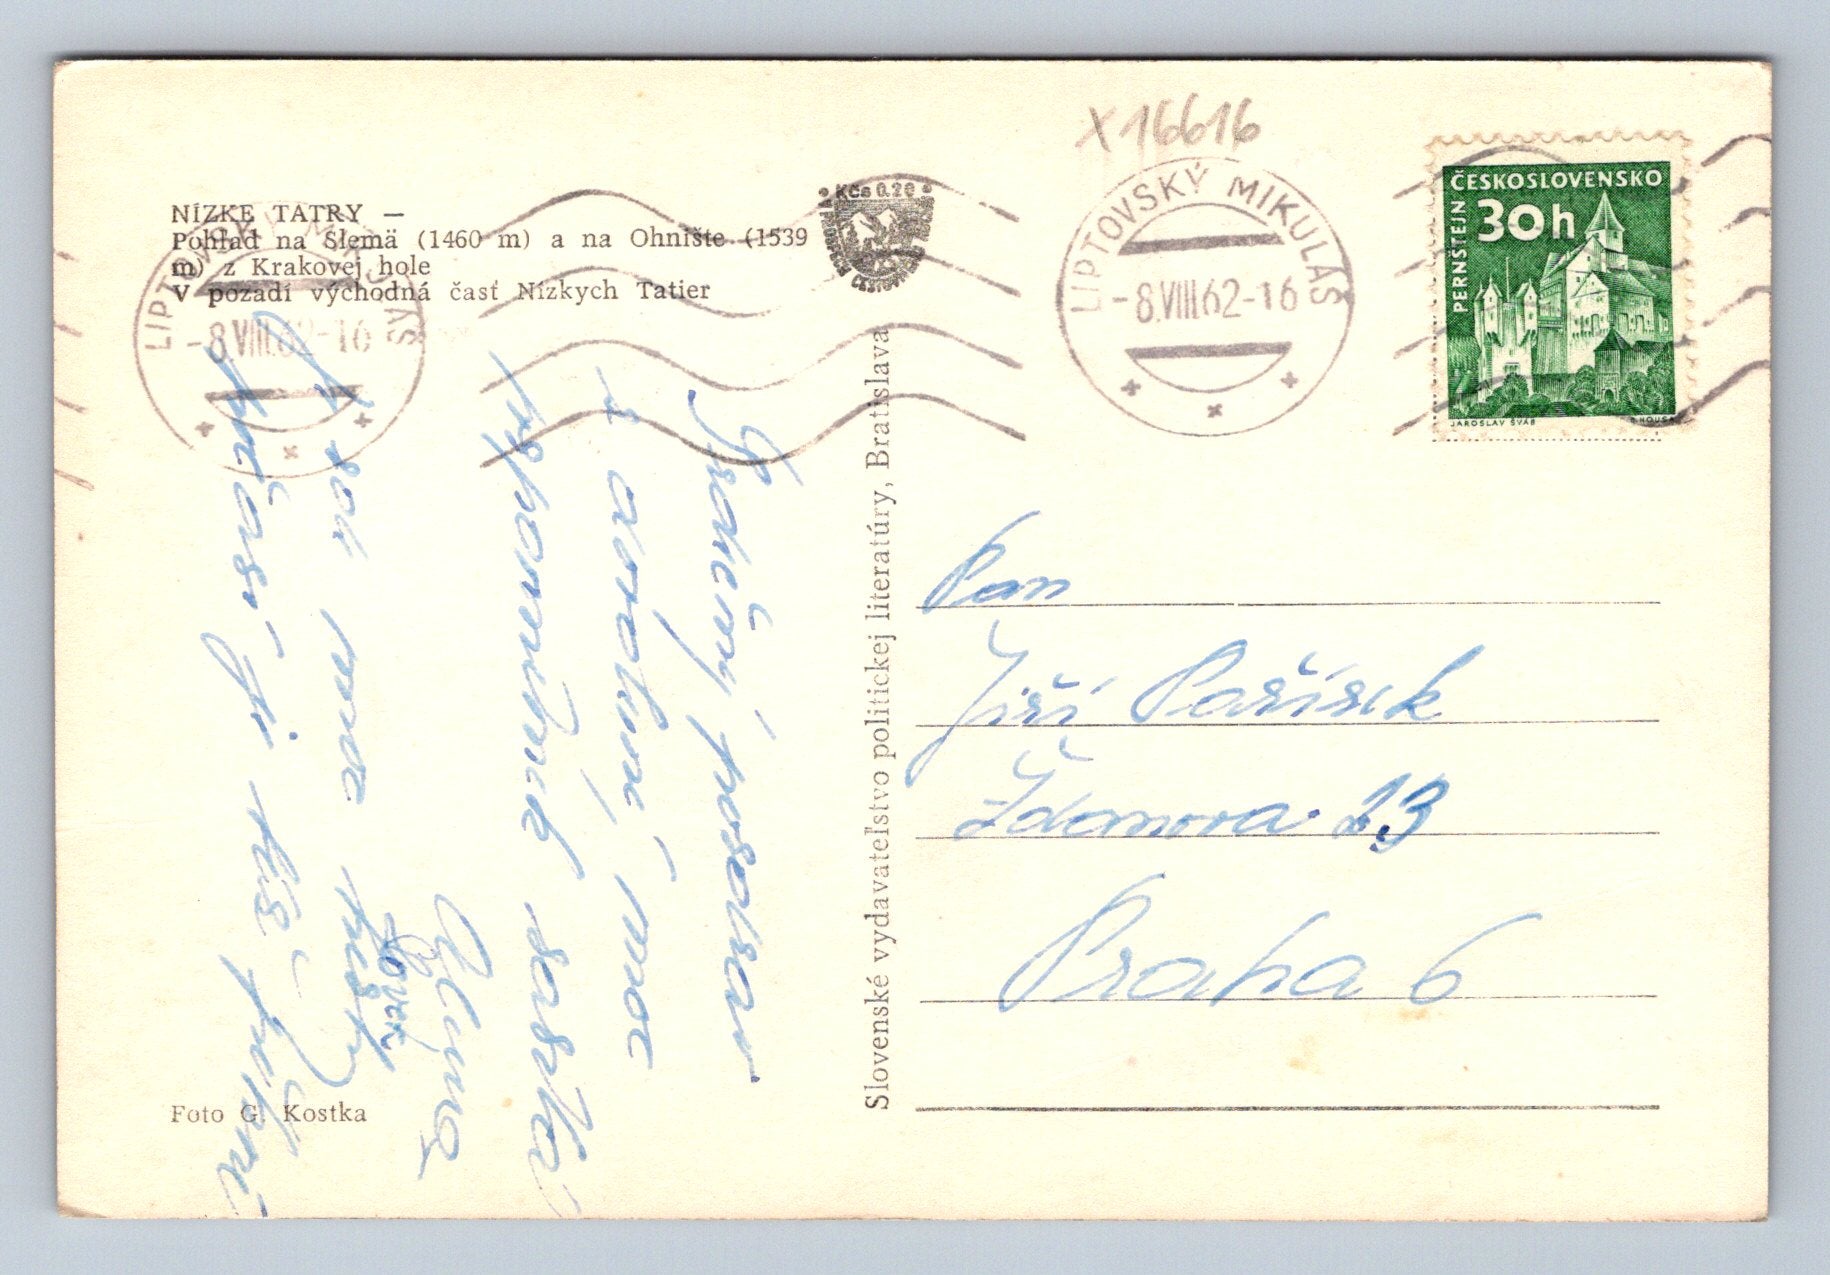 X 16616
NÍZKE TATRY —
Pohľad na Slemä (1460 m) a na Ohnište (1539
m) z Krakovej hole
V pozadí východná časť Nízkych Tatier
KČs 0.20
LIPTOVSKÝ MIKULÁŠ
-8.VIII.62-16
LIPTOVSKÝ MIKULÁŠ
-8.VIII.62-16
ČESKOSLOVENSKO
30h
PERNŠTEJN
JAROSLAV ŠVÁB
Srdečný pozdrav
z dovolené, moc
vzpomínek zasílá
Alena
Slovenské vydavateľstvo politickej literatúry, Bratislava
Pan
Jiří Pařízek
Ždanova 23
Praha 6
Foto G. Kostka